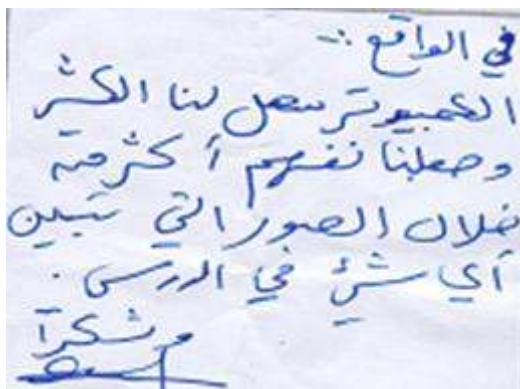 في الواقع :-
الكمبيوتر سهل لنا الكثير
وجعلنا نفهم أكثر من
خلال الصور التي تبين
أي شئ في الدرس .
وشكراً